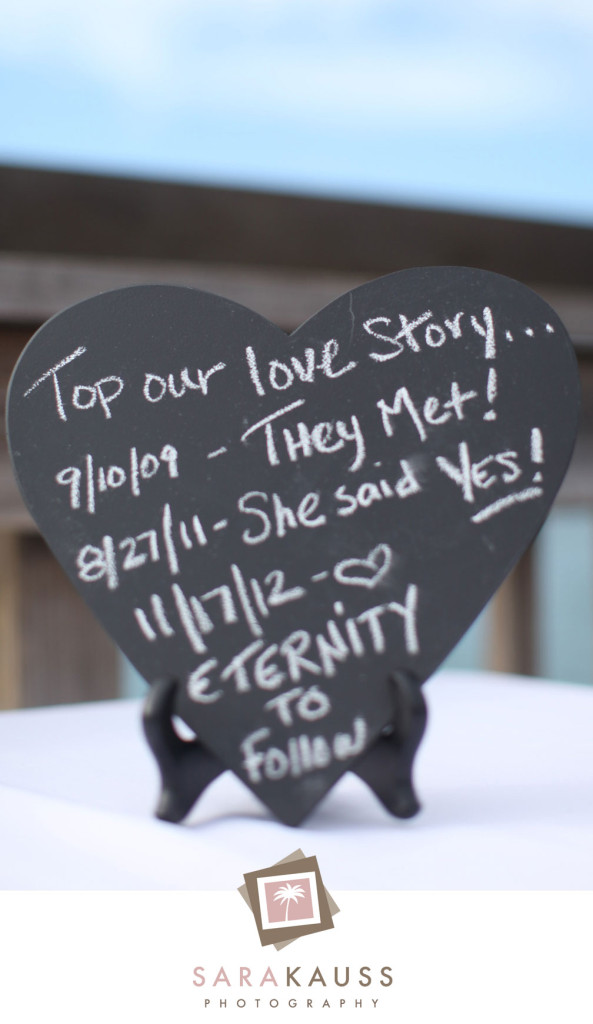 Top our love Story...
9/10/09 - THey Met!
8/27/11 - She said YES!
11/17/12 - ♡
ETERNITY
TO
Follow
SARAKAUSS
PHOTOGRAPHY